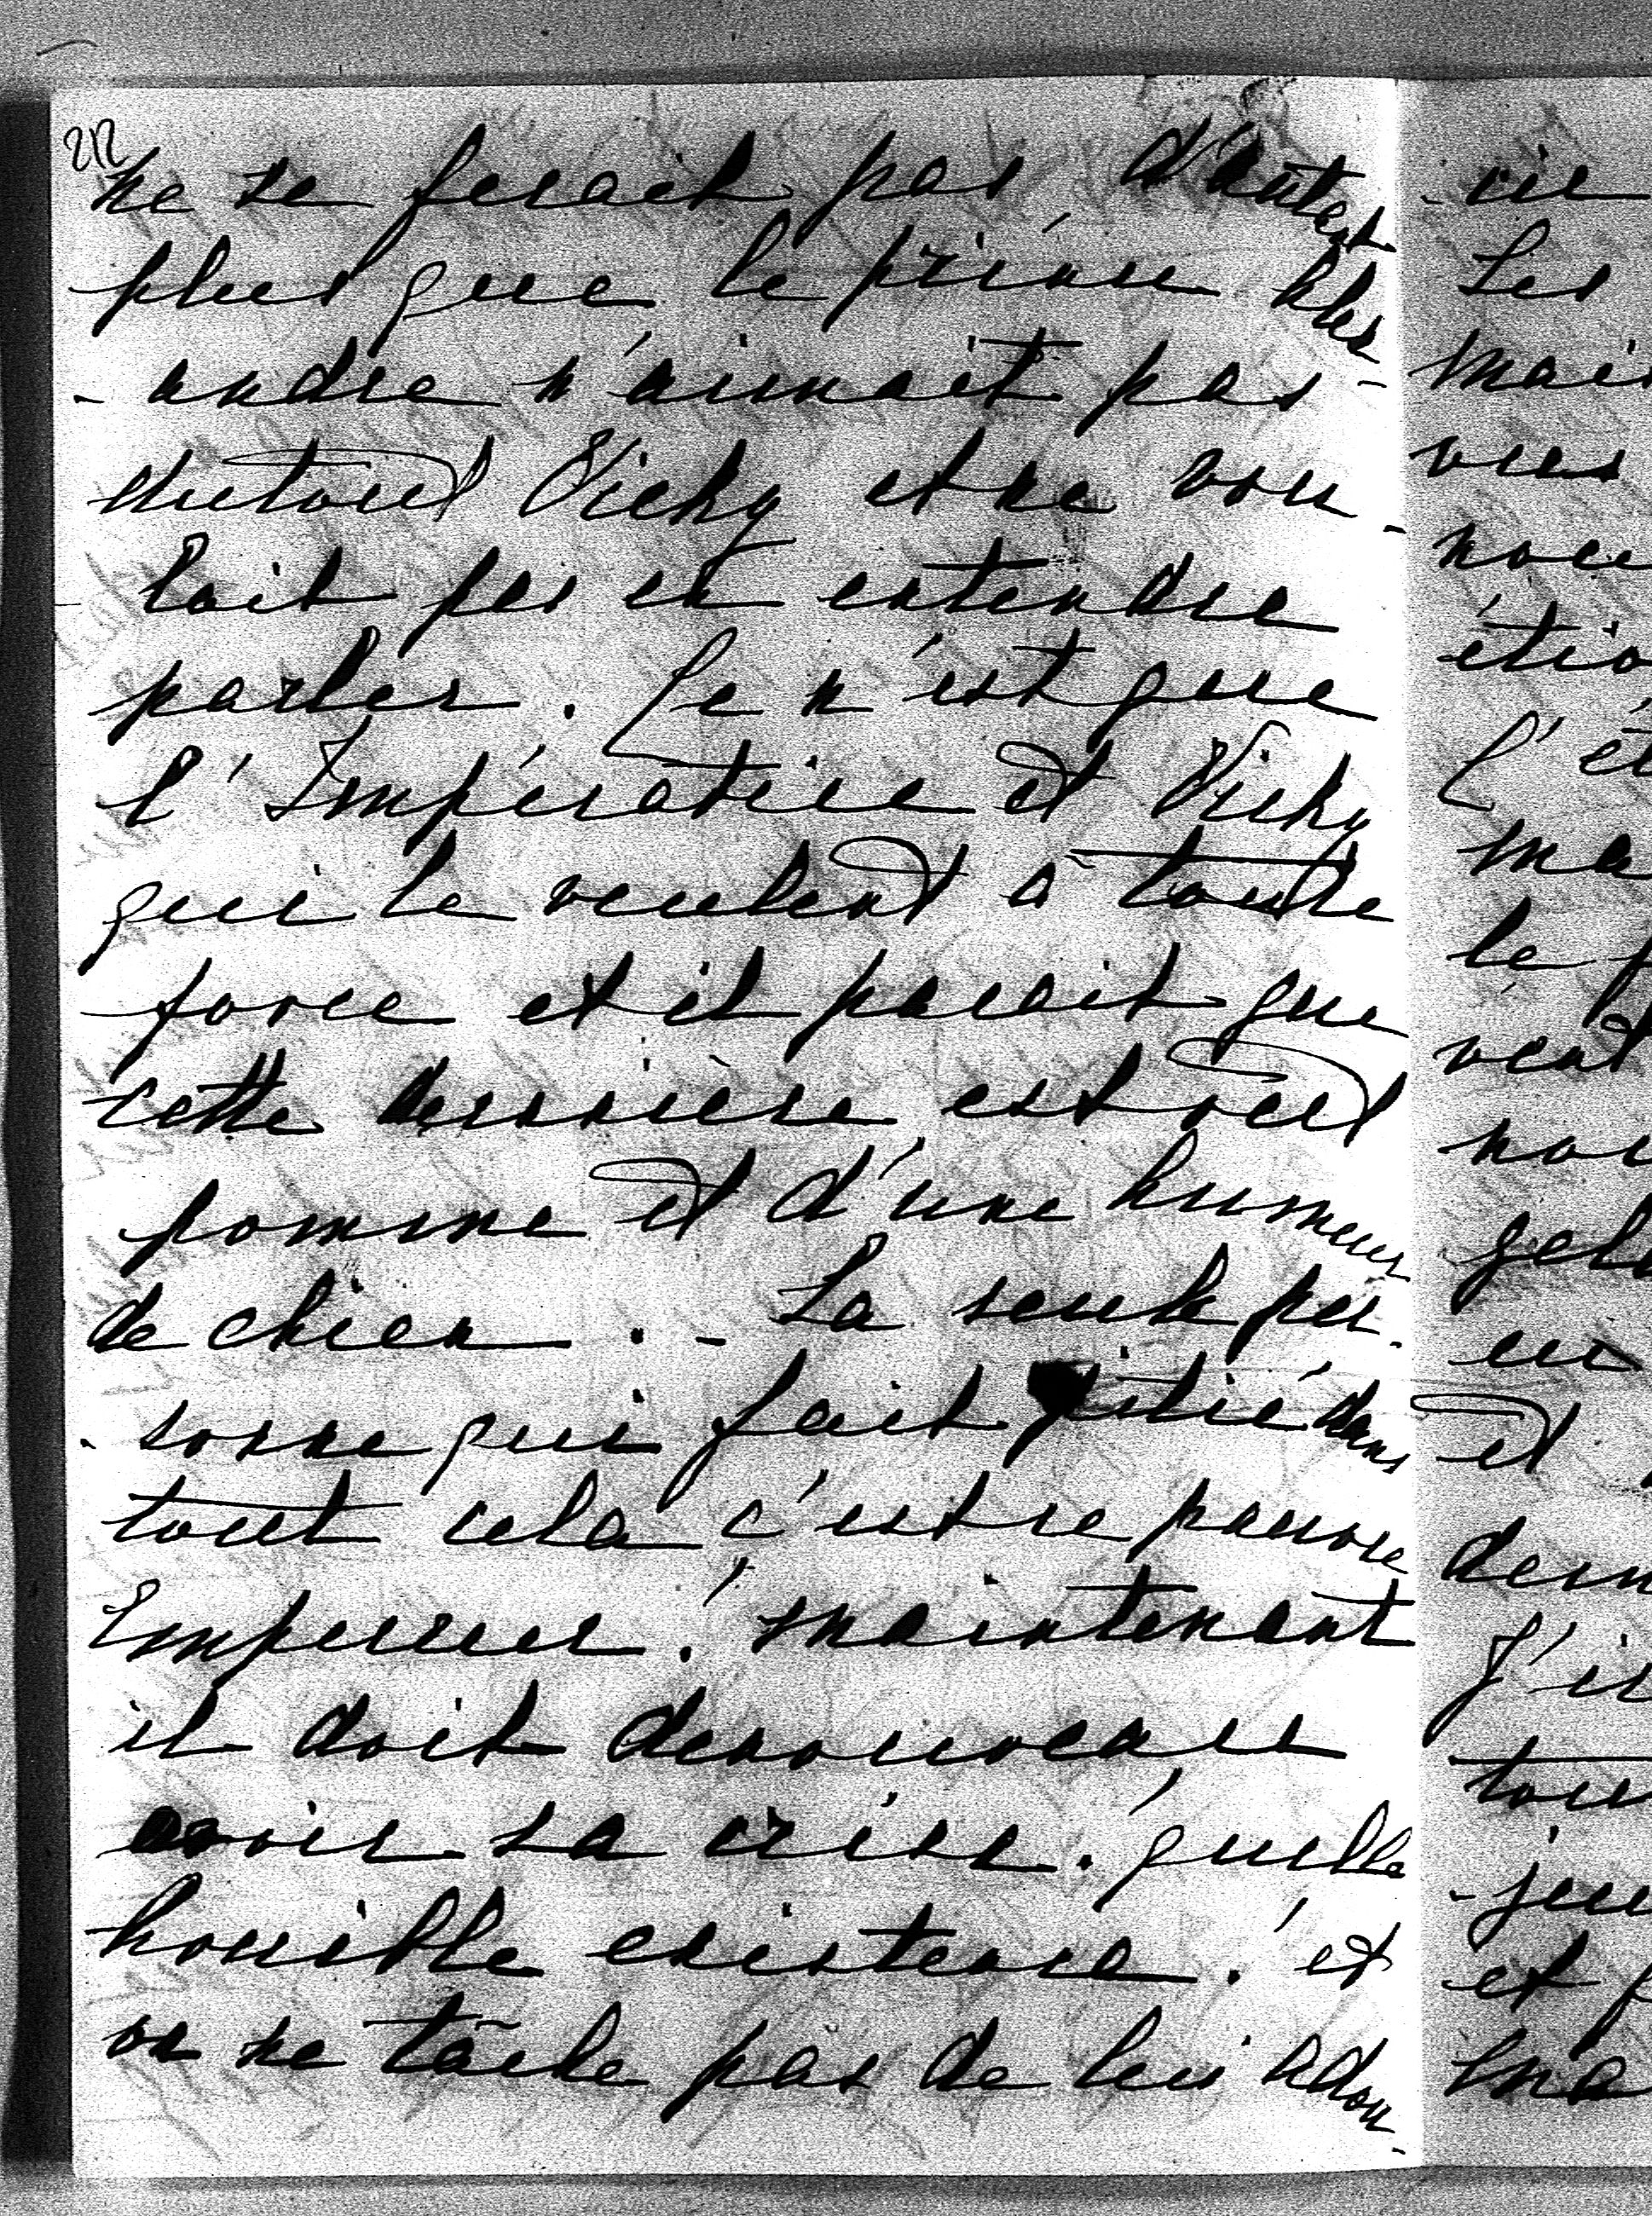 212
ne se ferait pas, d'autant
plus que le prince Alex
- andre n'aimait pas -
surtout Vicky et ne vou -
- lait pas en entendre
parler. Ce n'est que
l'Impératrice et Vicky
qui le veulent à toute
force et il parait que
cette dernière est
pomme et d'une humeur
de chien. - La seule per -
- sonne qui fait pitié dans
tout cela c'est ce pauvre
Empereur! maintenant
il doit denouveau
avoir sa crise. quelle
horrible existence! et
on ne tâche pas de lui adou -
- vie
Les
mais
vers
noce
étio
l'ét
ma
le p
vent
nou
gel
en
et
dern
J'ir
tou
- jeu
et p
ma